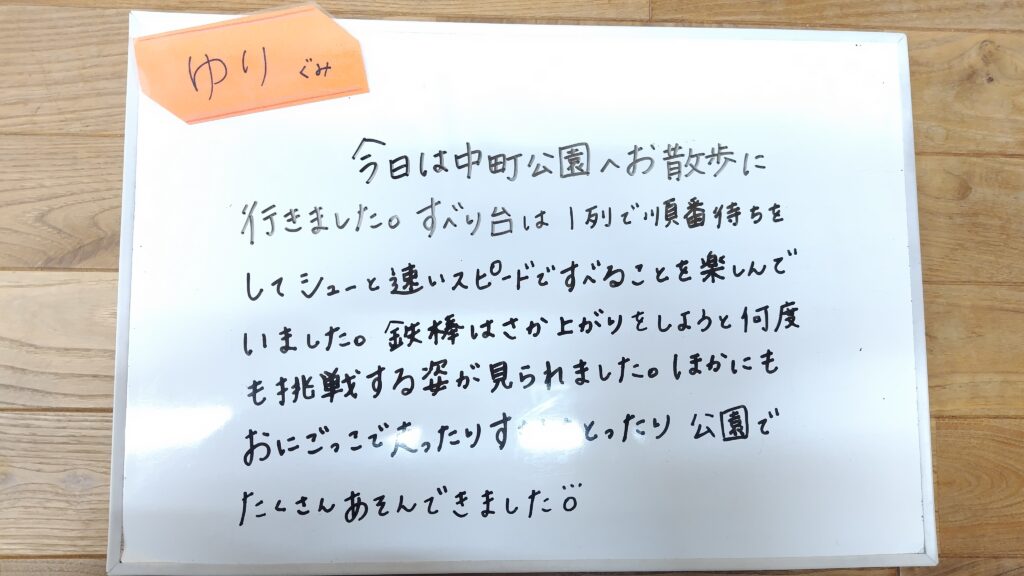 ゆり ぐみ
今日は中町公園へお散歩に
行きました。すべり台は1列で順番待ちを
してシューと速いスピードですべることを楽しんで
いました。鉄棒はさか上がりをしようと何度
も挑戦する姿が見られました。ほかにも
おにごっこで走ったりす とったり 公園で
たくさんあそんできました